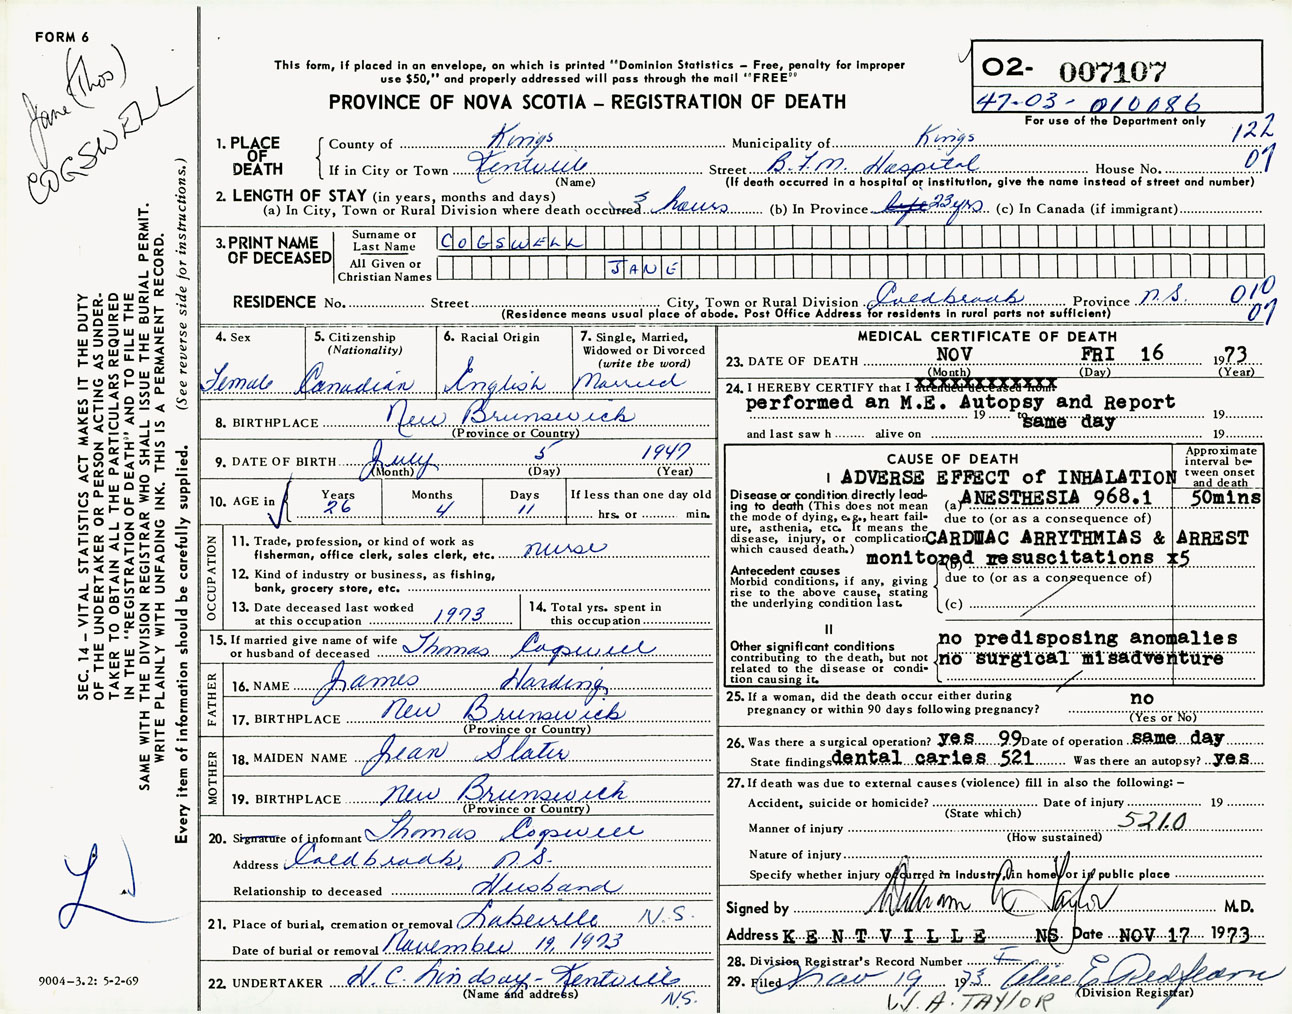 FORM 6
Jane (Thos)
COGSWELL
This form, if placed in an envelope, on which is printed "Dominion Statistics – Free, penalty for improper
use $50," and properly addressed will pass through the mail "FREE"
PROVINCE OF NOVA SCOTIA – REGISTRATION OF DEATH
02- 007107
47-03- 010086
For use of the Department only
122
07
1. PLACE OF DEATH
County of Kings Municipality of Kings
If in City or Town Kentville Street B.F.M. Hospital House No.
(Name) (If death occurred in a hospital or institution, give the name instead of street and number)
2. LENGTH OF STAY (in years, months and days)
(a) In City, Town or Rural Division where death occurred 3 hours (b) In Province life 23 yrs (c) In Canada (if immigrant)
3. PRINT NAME OF DECEASED
Surname or Last Name COGSWELL
All Given or Christian Names JANE
010
07
RESIDENCE No. Street City, Town or Rural Division Coldbrook Province N.S.
(Residence means usual place of abode. Post Office Address for residents in rural parts not sufficient)
4. Sex Female
5. Citizenship (Nationality) Canadian
6. Racial Origin English
7. Single, Married, Widowed or Divorced (write the word) Married
8. BIRTHPLACE New Brunswick
(Province or Country)
9. DATE OF BIRTH July 5 1947
(Month) (Day) (Year)
10. AGE in Years 26 Months 4 Days 11 If less than one day old
hrs. or min.
OCCUPATION
11. Trade, profession, or kind of work as
fisherman, office clerk, sales clerk, etc. nurse
12. Kind of industry or business, as fishing,
bank, grocery store, etc.
13. Date deceased last worked
at this occupation 1973
14. Total yrs. spent in
this occupation
15. If married give name of wife
or husband of deceased Thomas Cogswell
FATHER
16. NAME James Harding
17. BIRTHPLACE New Brunswick
(Province or Country)
MOTHER
18. MAIDEN NAME Jean Slater
19. BIRTHPLACE New Brunswick
(Province or Country)
20. Signature of informant Thomas Cogswell
Address Coldbrook, N.S.
Relationship to deceased Husband
21. Place of burial, cremation or removal Lakeville N.S.
Date of burial or removal November 19, 1973
22. UNDERTAKER H.C. Lindsay - Kentville
(Name and address) N.S.
MEDICAL CERTIFICATE OF DEATH
23. DATE OF DEATH NOV FRI 16 1973
(Month) (Day) (Year)
24. I HEREBY CERTIFY that I attended deceased from
performed an M.E. Autopsy and Report
19 to same day 19
and last saw h alive on 19
CAUSE OF DEATH
Approximate interval between onset and death
I ADVERSE EFFECT of INHALATION
Disease or condition directly leading to death (This does not mean the mode of dying, e.g., heart failure, asthenia, etc. It means the disease, injury, or complication which caused death.)
(a) ANESTHESIA 968.1 50mins
due to (or as a consequence of)
CARDIAC ARRYTHMIAS & ARREST
monitored resuscitations x5
(b)
Antecedent causes
Morbid conditions, if any, giving rise to the above cause, stating the underlying condition last.
due to (or as a consequence of)
(c)
II
Other significant conditions
contributing to the death, but not related to the disease or condition causing it.
no predisposing anomalies
no surgical misadventure
25. If a woman, did the death occur either during
pregnancy or within 90 days following pregnancy? no
(Yes or No)
26. Was there a surgical operation? yes 99 Date of operation same day
State findings dental caries 521 Was there an autopsy? yes
27. If death was due to external causes (violence) fill in also the following: –
Accident, suicide or homicide? Date of injury 19
(State which)
Manner of injury 521.0
(How sustained)
Nature of injury
Specify whether injury occurred in industry, in home or in public place
Signed by William C Taylor M.D.
Address KENTVILLE NS Date NOV 17 1973
28. Division Registrar's Record Number
29. Filed Nov 19 1973
(Division Registrar)
W. A. TAYLOR
SEC. 14 – VITAL STATISTICS ACT MAKES IT THE DUTY
OF THE UNDERTAKER OR PERSON ACTING AS UNDER-
TAKER TO OBTAIN ALL THE PARTICULARS REQUIRED
IN THE "REGISTRATION OF DEATH" AND TO FILE THE
SAME WITH THE DIVISION REGISTRAR WHO SHALL ISSUE THE BURIAL PERMIT.
WRITE PLAINLY WITH UNFADING INK. THIS IS A PERMANENT RECORD.
Every item of information should be carefully supplied. (See reverse side for instructions.)
9004–3.2: 5-2-69